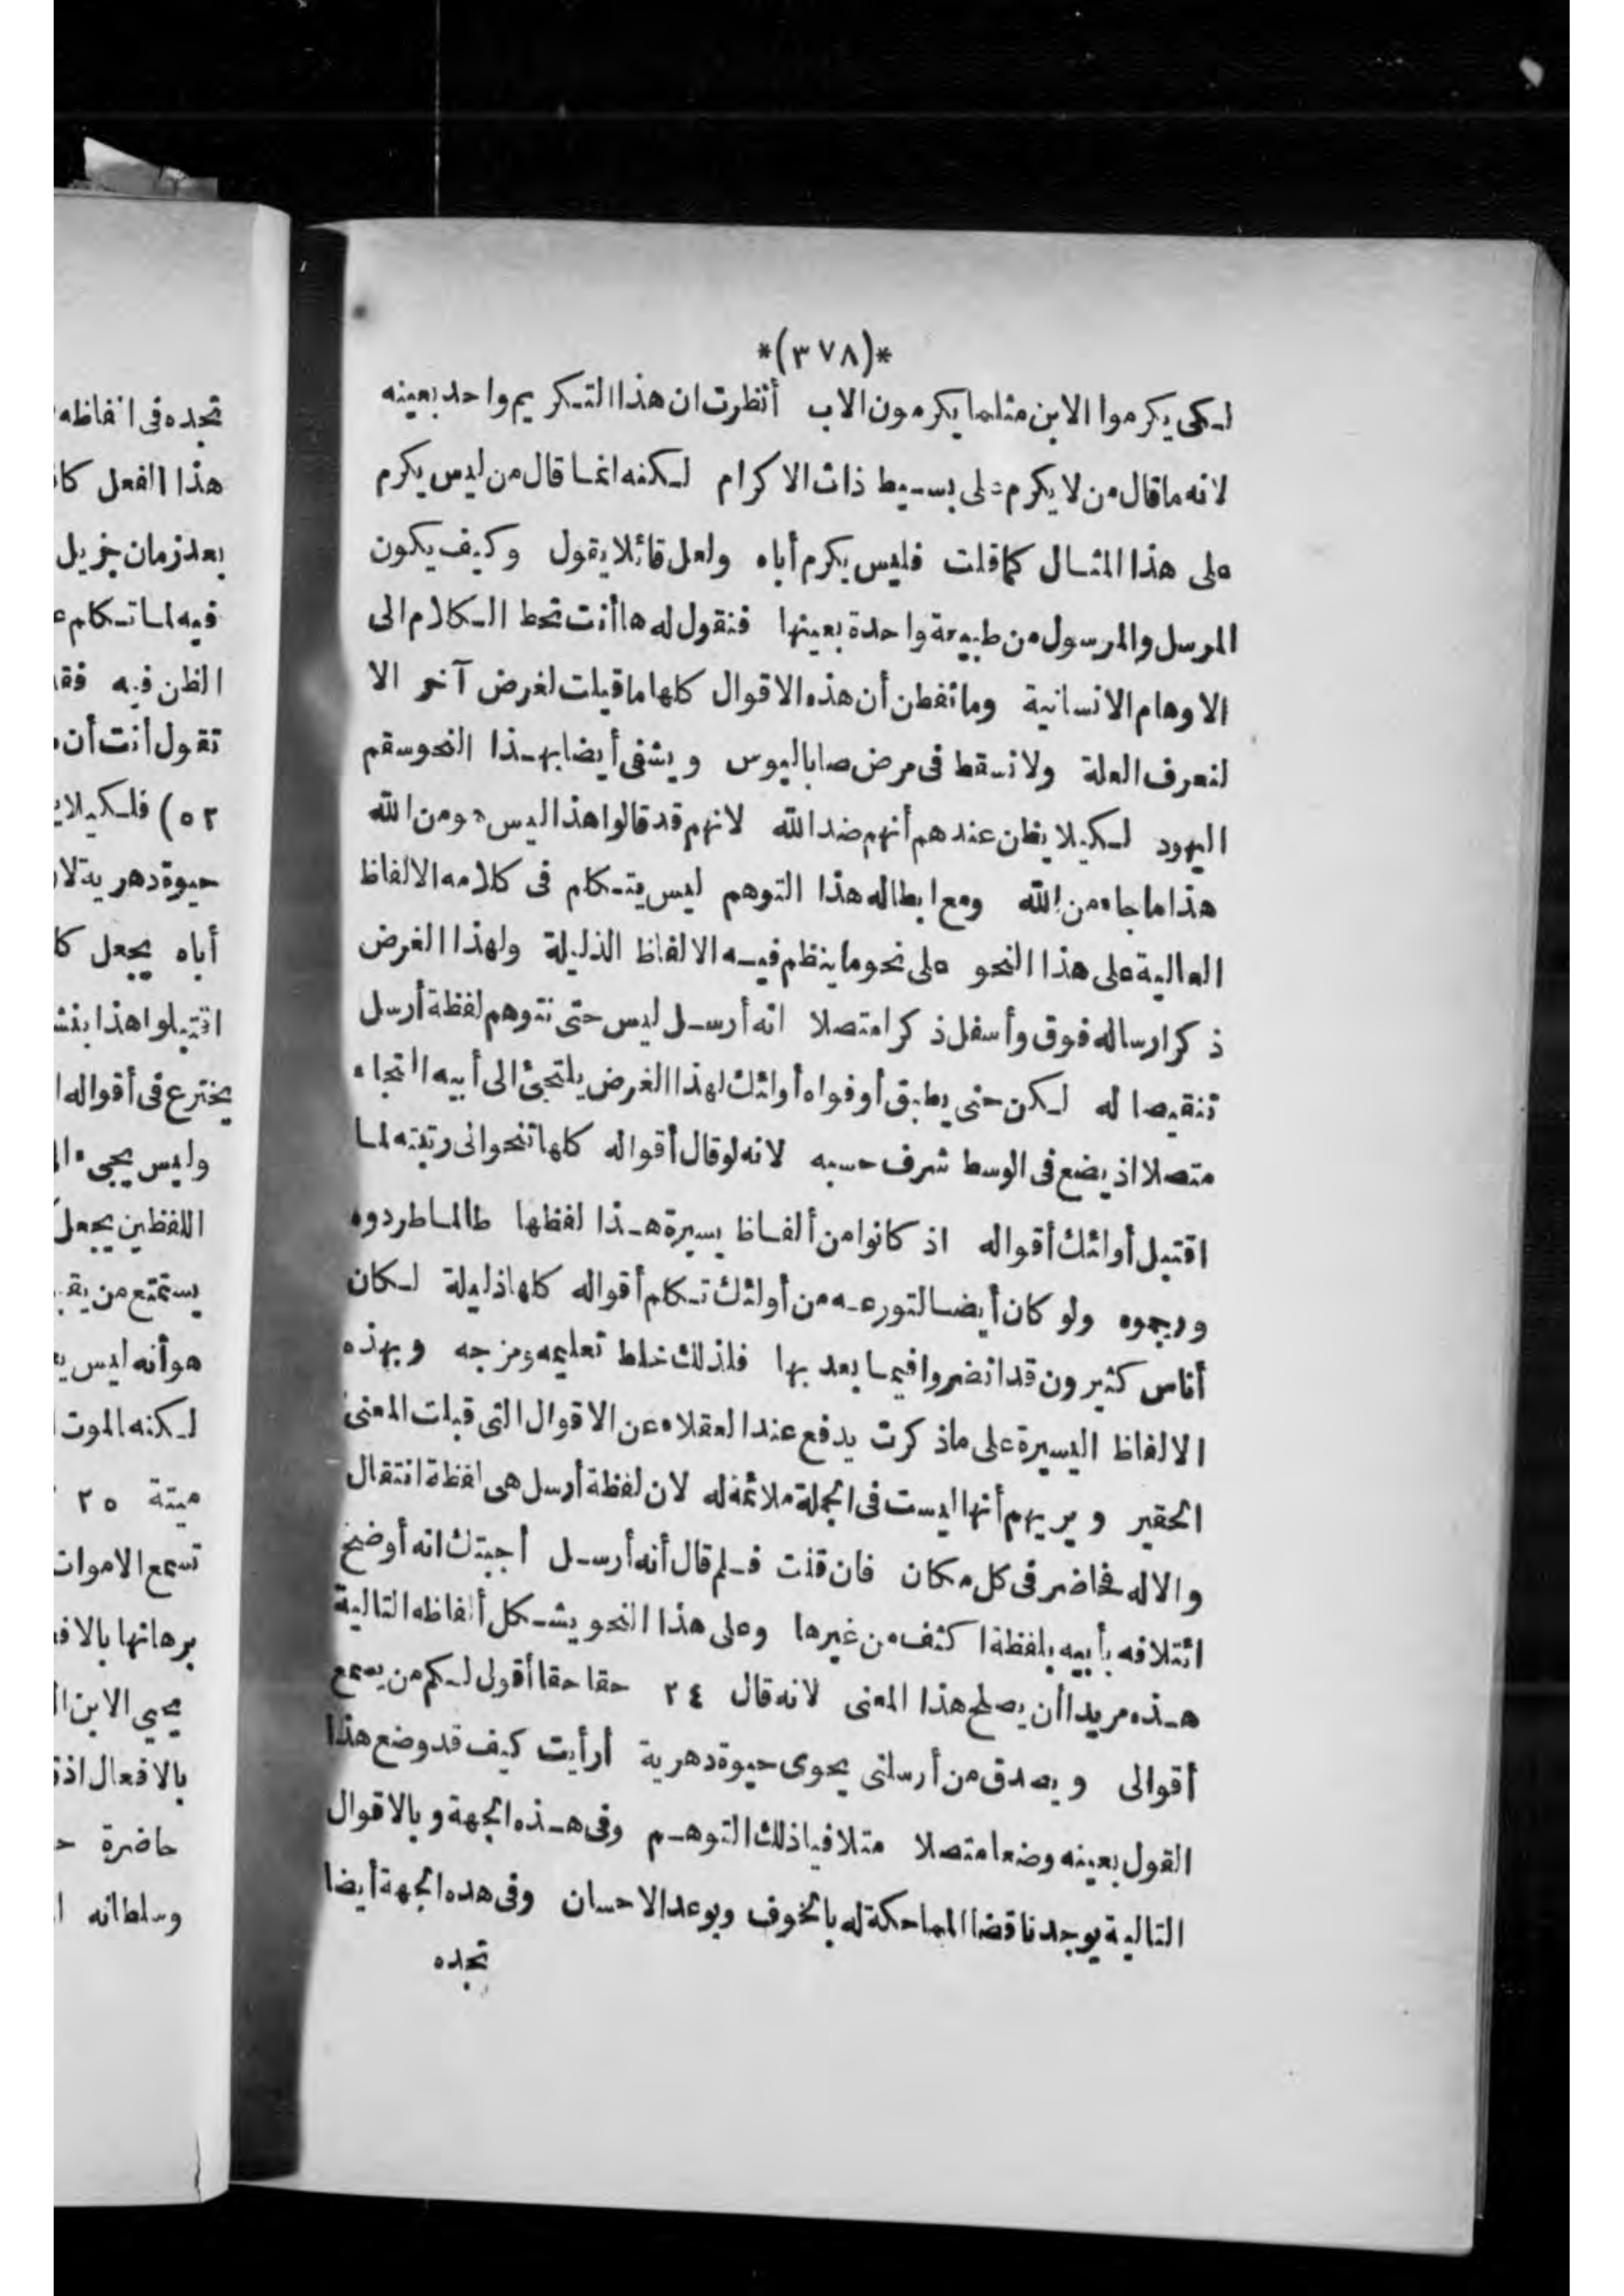 *(٣٧٨)*
لكى يكرموا الابن مثلما يكرمون الاب أنظرت ان هذا التكريم واحد بعينه
لانه ما قال من لا يكرم على بسيط ذات الاكرام لكنه انما قال من ليس يكرم
على هذا المثال كما قلت فليس يكرم أباه ولعل قائلا يقول وكيف يكون
المرسل والمرسول من طبيعة واحدة بعينها فنقول له ها أنت تحط الكلام الى
الاوهام الانسانية وما تفطن أن هذه الاقوال كلها ما قيلت لغرض آخر الا
لنعرف العلة ولا نسقط فى مرض صاباليوس ويشفى أيضا بهذا النحو سقم
اليهود لكيلا يظن عندهم أنهم ضد الله لانهم قد قالوا هذا ليس هو من الله
هذا ما جاء من الله ومع ابطاله هذا التوهم ليس يتكلم فى كلامه الالفاظ
العالية على هذا النحو على نحو ما ينظم فيه الالفاظ الذليلة ولهذا الغرض
ذكر ارساله فوق وأسفل ذكرا متصلا انه أرسل ليس حتى نتوهم لفظة أرسل
تنقيصا له لكن حتى يطبق أوفواه أولئك لهذا الغرض يلتجئ الى أبيه التجاء
متصلا اذ يضع فى الوسط شرف حسبه لانه لو قال أقواله كلها تنحو الى رتبته لما
اقتبل أولئك أقواله اذ كانوا من ألفاظ يسيرة هذا لفظها طالما طردوه
ورجموه ولو كان أيضا لتورعه من أولئك تكلم أقواله كلها ذليلة لكان
أناس كثيرون قد انضروا فيما بعد بها فلذلك خلط تعليمه ومزجه وبهذه
الالفاظ اليسيرة على ما ذكرت يدفع عند العقلاء عن الاقوال التى قيلت المعنى
الحقير ويريهم أنها ليست فى الجملة ملائمة له لان لفظة أرسل هى لفظة انتقال
والاله فحاضر فى كل مكان فان قلت فلم قال أنه أرسل أجبتك انه أوضح
ائتلافه بأبيه بلفظة اكثف من غيرها وعلى هذا النحو يشكل ألفاظه التالية
هذه مريدا أن يصلح هذا المعنى لانه قال ٢٤ حقا حقا أقول لكم من يسمع
أقوالى ويصدق من أرسلنى يحوى حيوة دهرية أرأيت كيف قد وضع هذا
القول بعينه وضعا متصلا متلافيا ذلك التوهم وفى هذه الجهة وبالاقوال
التالية يوجد ناقضا المماحكة له بالخوف وبوعد الاحسان وفى هذه الجهة أيضا
تجده
تجده فى الفاظه
هذا الفعل
بعد زمان جزيل
فيه لما تكلم
الظن فيه
تقول أنت أن
٥٢) فلكيلا
حيوة دهرية
أباه يجعل
اقتبلوا هذا
يخترع فى أقواله
وليس يجىء
اللفظين يجعل
يستمتع من
هو أنه ليس
لكنه الموت
ميتة ٢٥
تسمع الاموات
برهانها
يحيي الابن
بالافعال
حاضرة
وسلطانه